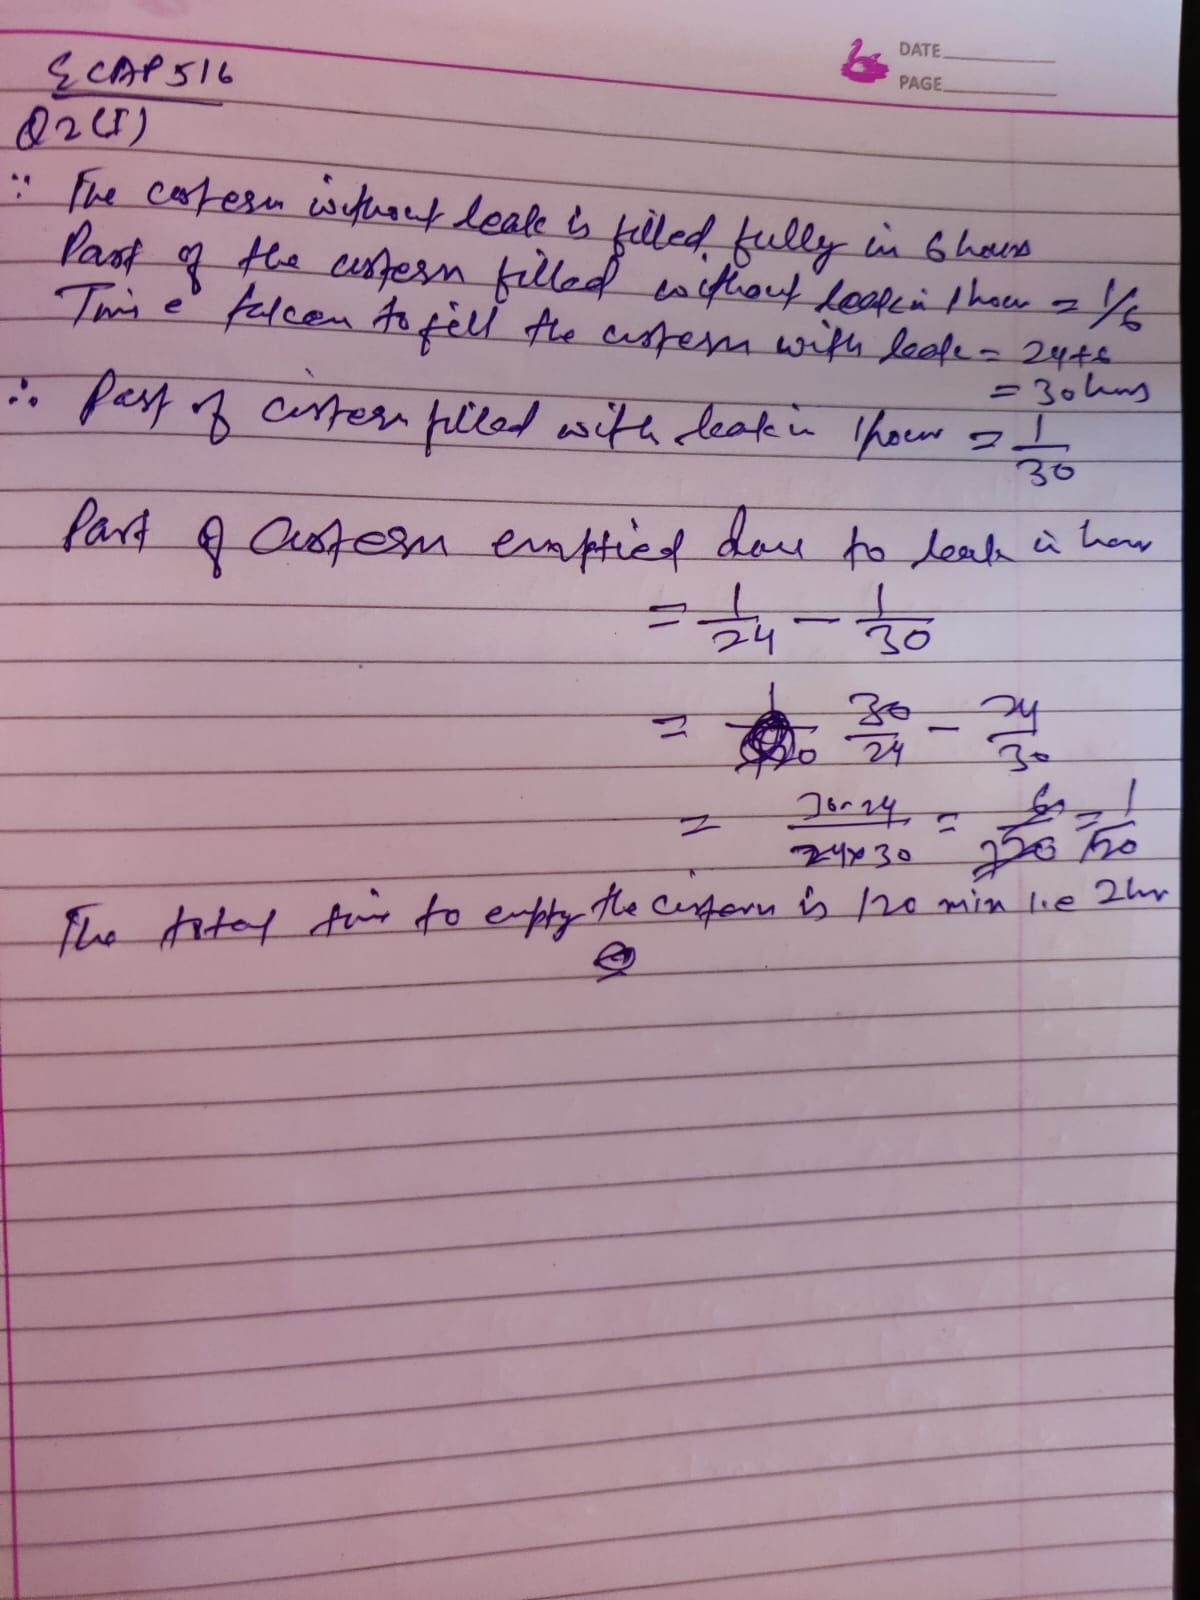 DATE
PAGE
ECAP516
Q2(I)
∵ The cestern without leak is filled fully in 6 hours
Part of the cestern filled without leak in 1 hour = 1/6
Time taken to fill the cestern with leak = 24+6
= 30 hrs
∴ Part of cistern filled with leak in 1 hour = 1/30
Part of Cestern emptied due to leak in hour
= 1/24 - 1/30
= 30/24 - 24/30
= 30-24/24×30 = 6/720 = 1/120
The total time to empty the cestern is 120 min i.e 2hr